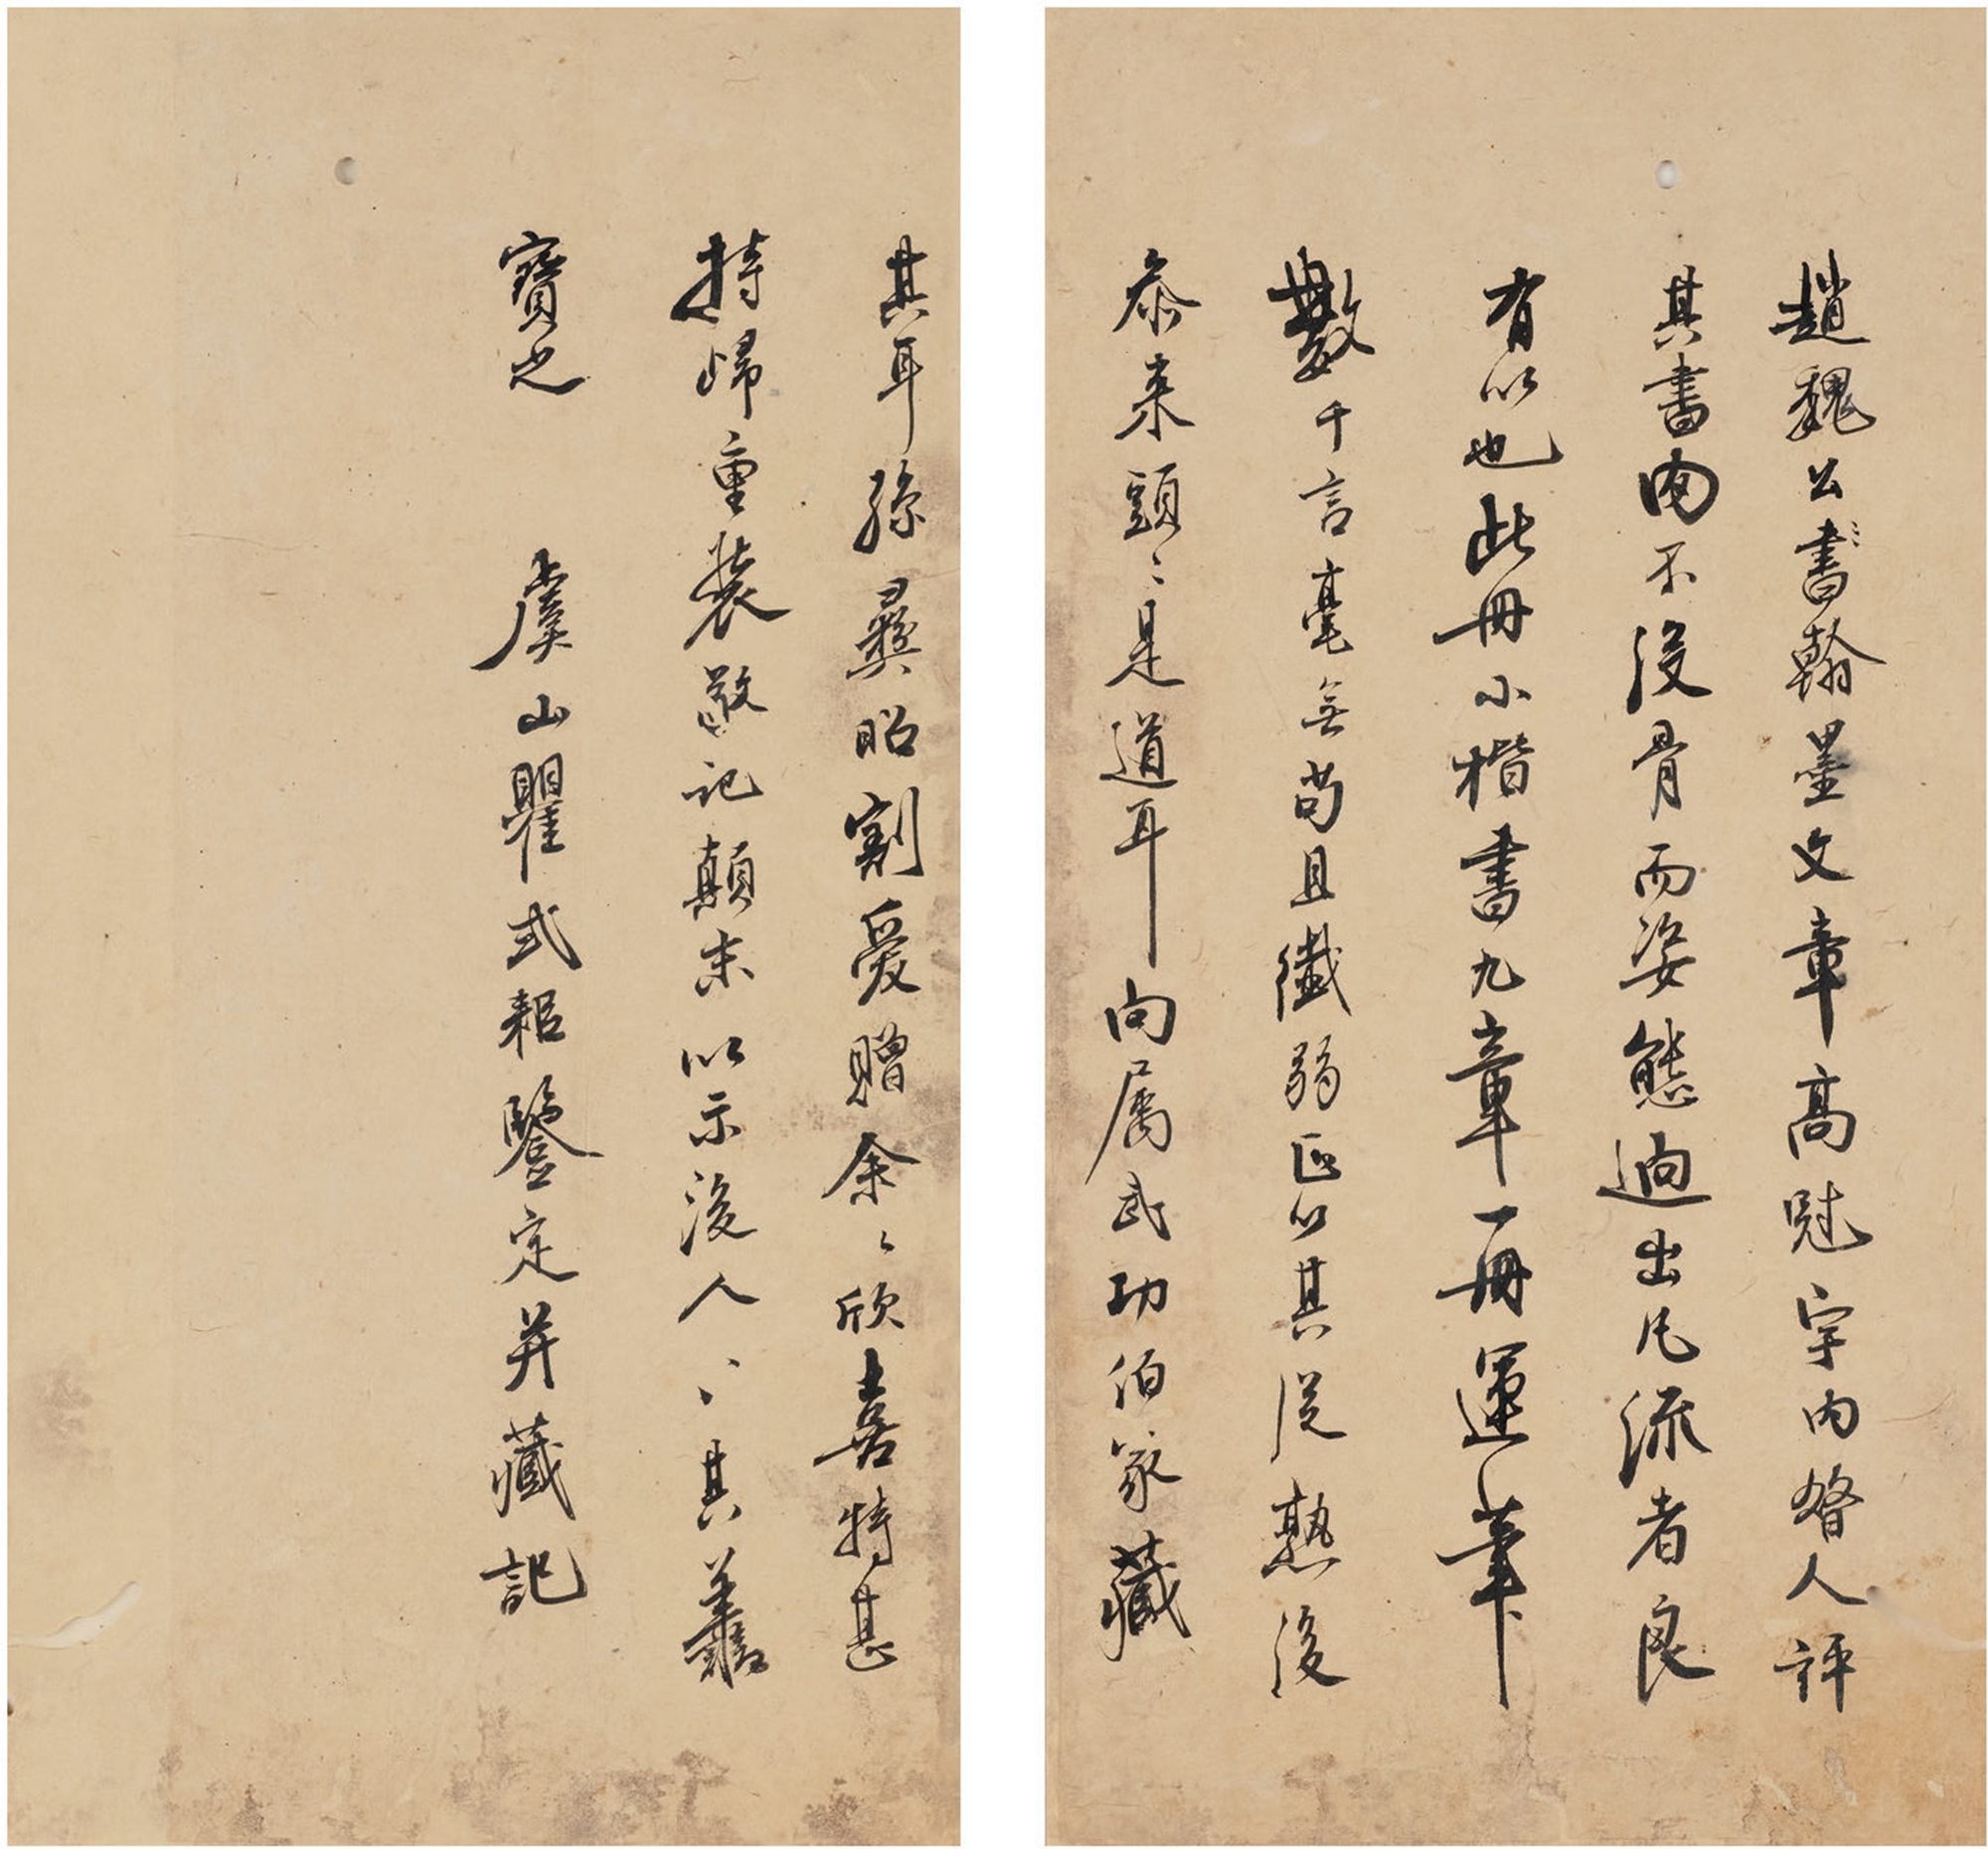 趙魏公書翰墨文章高冠宇内昝人評
其書肉不没骨而姿態逈出凡流者良
有以也此冊小楷書九章一冊運筆
數千言毫無苟且纖弱正以其從熟後
參来頭〻是道耳向属武功伯家藏
其耳孫彛昭割愛贈余〻欣喜特甚
持歸重裝敬記顛末以示後人〻其善
寶之 虞山瞿式耜鑒定并藏記